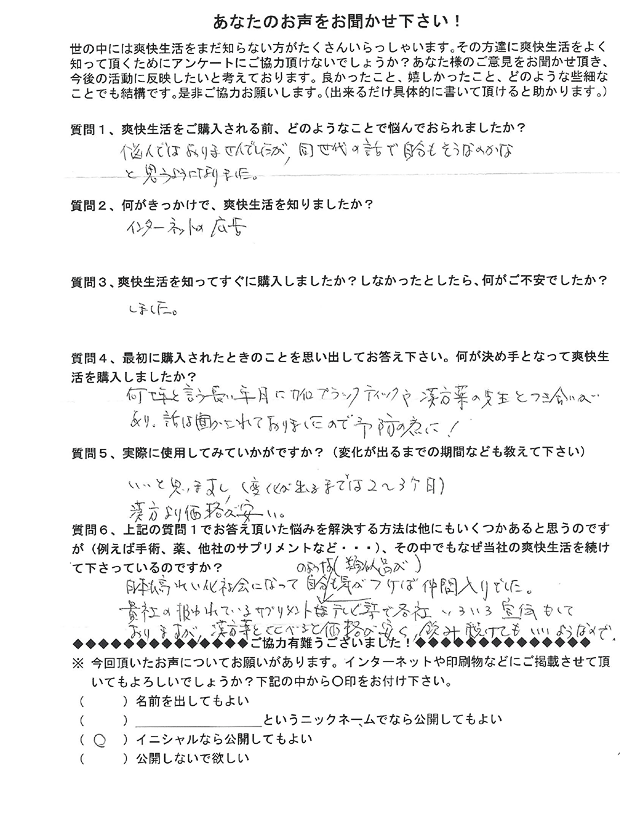 あなたのお声をお聞かせ下さい!
世の中には爽快生活をまだ知らない方がたくさんいらっしゃいます。その方達に爽快生活をよく
知って頂くためにアンケートにご協力頂けないでしょうか?あなた様のご意見をお聞かせ頂き、
今後の活動に反映したいと考えております。良かったこと、嬉しかったこと、どのような些細な
ことでも結構です。是非ご協力お願いします。(出来るだけ具体的に書いて頂けると助かります。)
質問1、爽快生活をご購入される前、どのようなことで悩んでおられましたか?
悩んではありませんでしたが、同世代の話で自分もそうなのかな
と思うようになりました。
質問2、何がきっかけで、爽快生活を知りましたか?
インターネットの広告
質問3、爽快生活を知ってすぐに購入しましたか?しなかったとしたら、何がご不安でしたか?
しました。
質問4、最初に購入されたときのことを思い出してお答え下さい。何が決め手となって爽快生
活を購入しましたか?
何十年と言う長い年月にカイロプラクティックや漢方薬の先生とつき合いが
あり、話は聞かされておりましたので予防の為に!
質問5、実際に使用してみていかがですか?(変化が出るまでの期間なども教えて下さい)
いいと思います。(変化が出るまでは2~3ケ月)
漢方より価格が安い。
質問6、上記の質問1でお答え頂いた悩みを解決する方法は他にもいくつかあると思うのです
が(例えば手術、薬、他社のサプリメントなど・・・)、その中でもなぜ当社の爽快生活を続け
て下さっているのですか?
のような(類似品が)
日本も高れい化社会になって自分も気がつけば仲間入りでした。
貴社の扱われているサプリメント テレビ等で各社いろいろ宣伝もして
おりますが、漢方薬とくらべると価格が安く、飲み続けてもいいようなので。
◆◆◆◆◆◆◆◆◆◆◆◆◆◆◆ご協力有難うございました!◆◆◆◆◆◆◆◆◆◆◆◆◆◆◆
※ 今回頂いたお声についてお願いがあります。インターネットや印刷物などにご掲載させて頂
いてもよろしいでしょうか?下記の中から○印をお付け下さい。
( )名前を出してもよい
( )____________________というニックネームでなら公開してもよい
( ○ )イニシャルなら公開してもよい
( )公開しないで欲しい